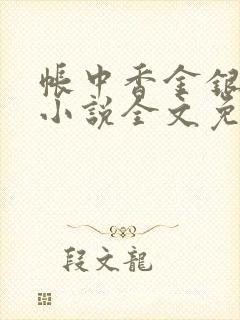 帳中香金銀
小說全文免
段文龍